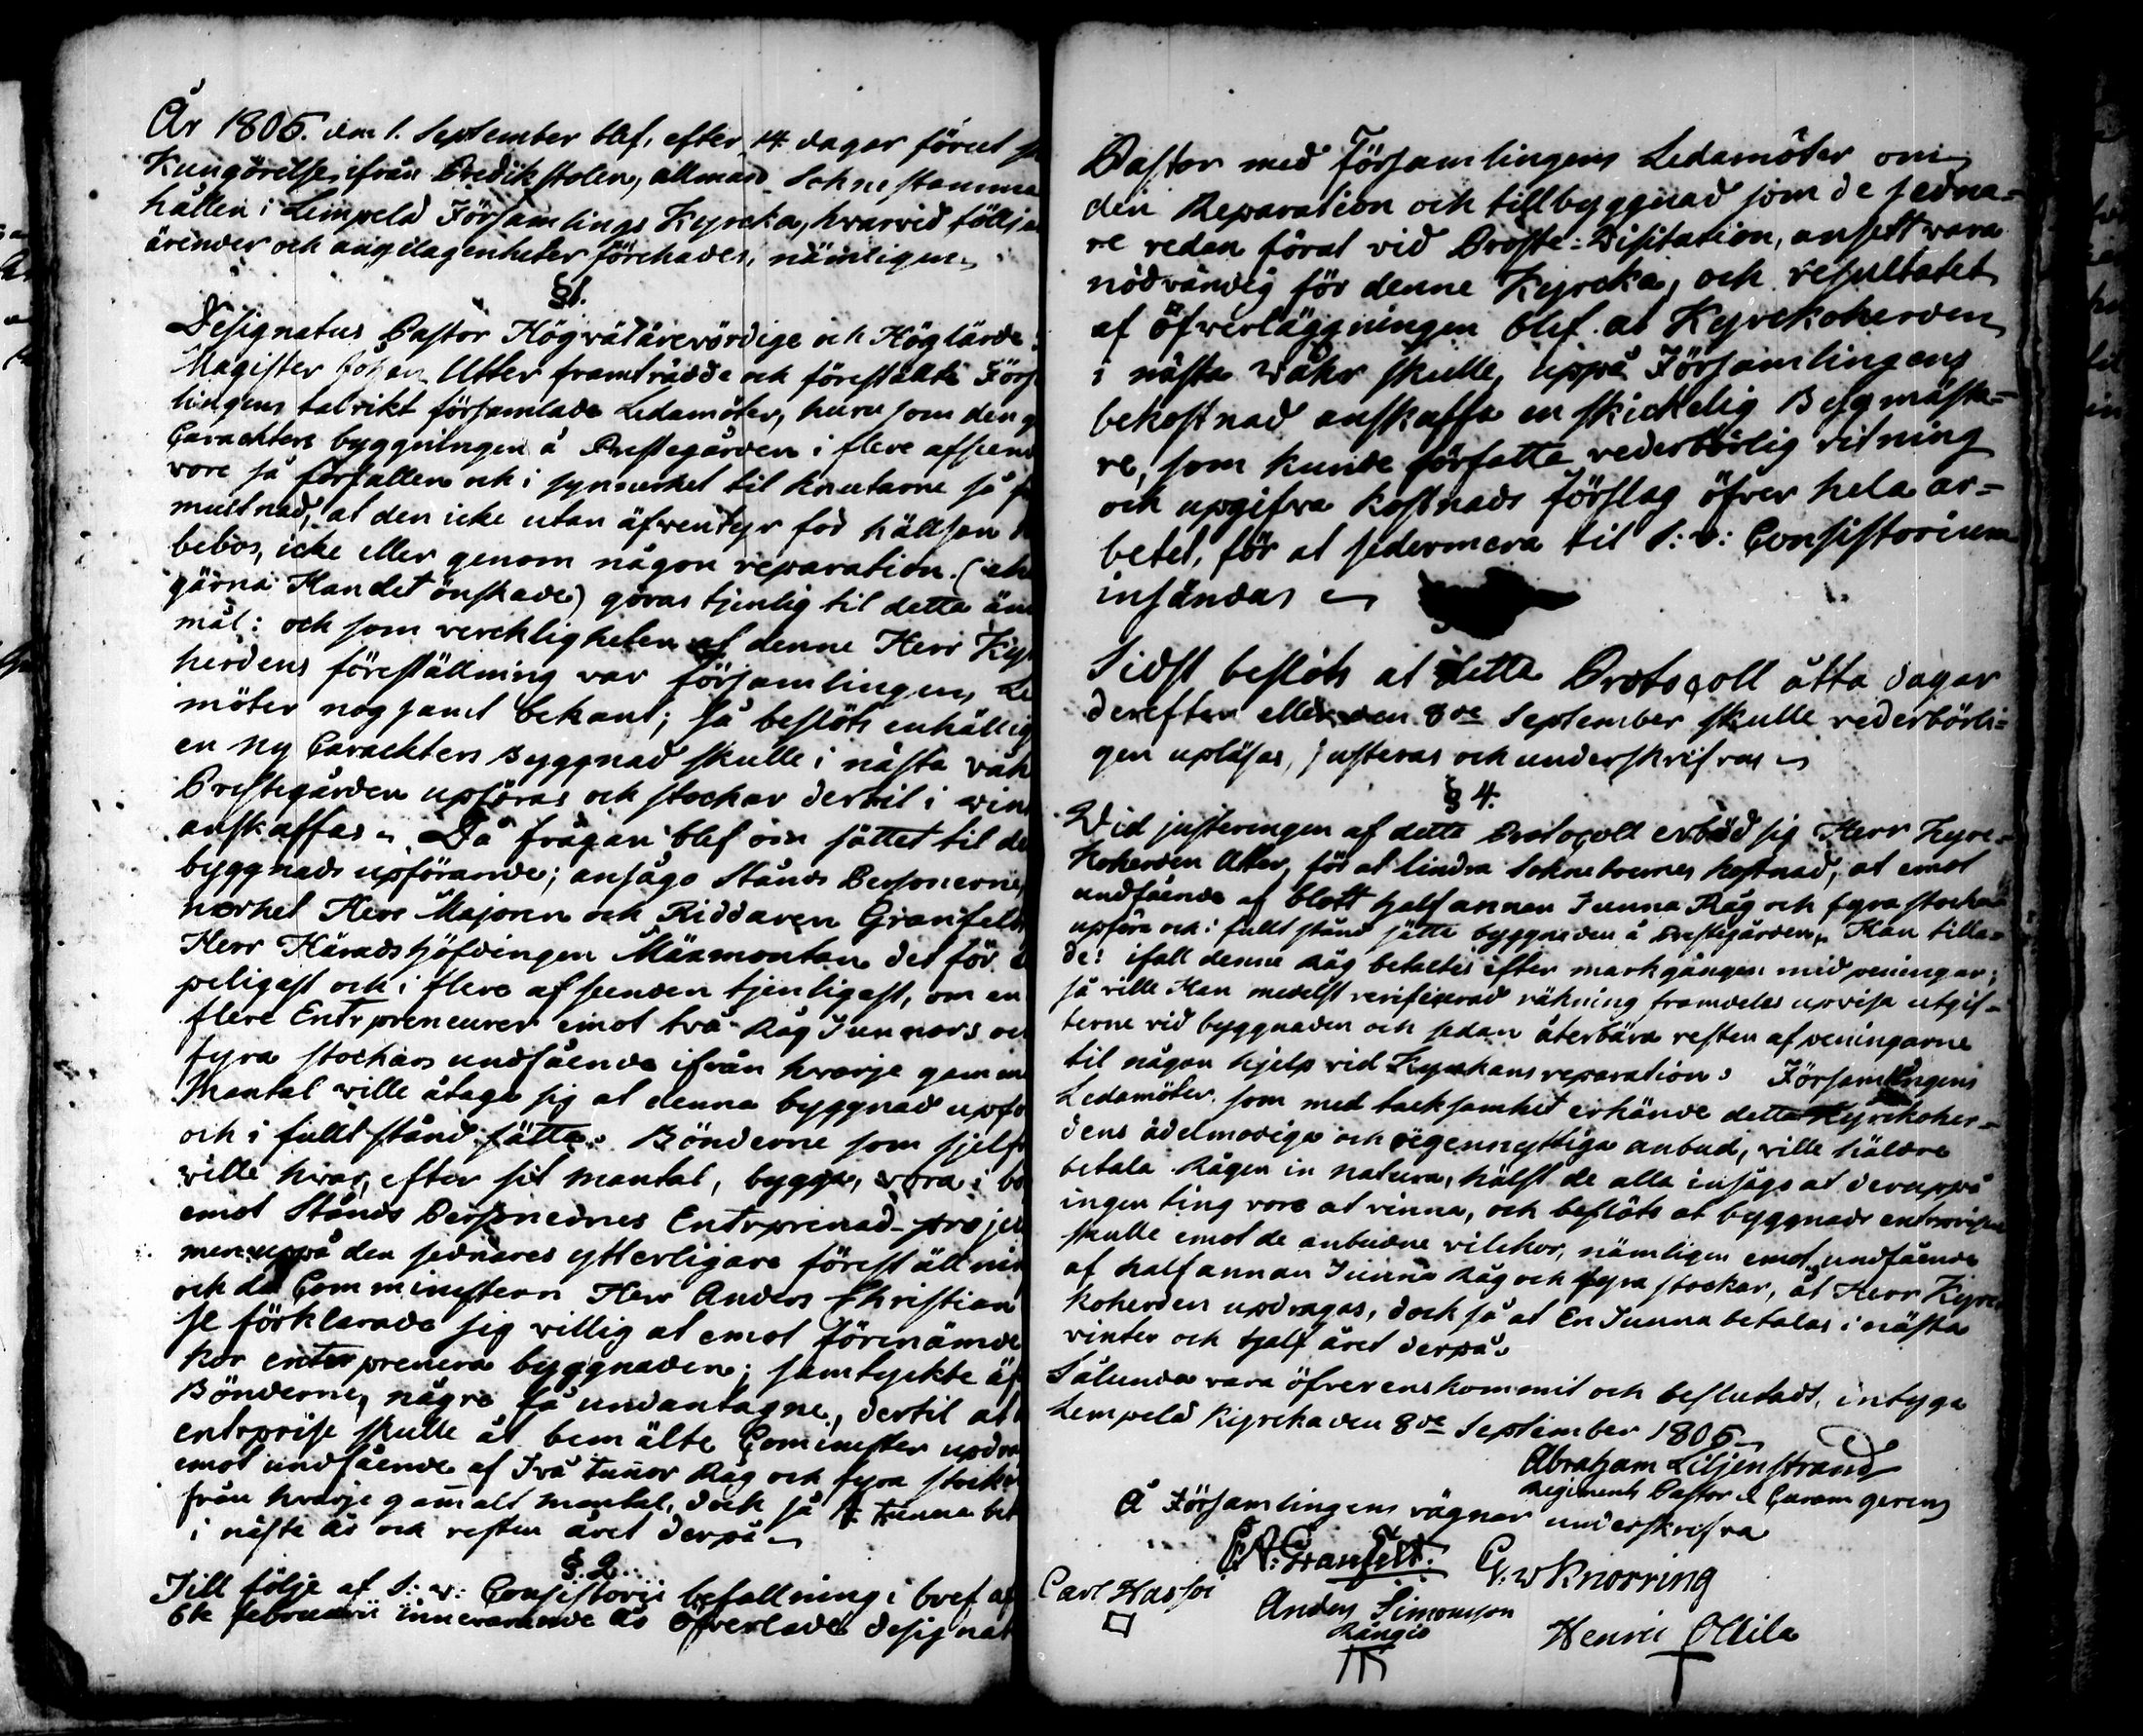 År 1805. den 1. September blef, efter 14 dagar förut
Kungörelse ifrån Predikstolen, allmän Sokne stämma
hållen i Lempelä Församlings Kyrcka, hvarvid följan
ärender och angelägenheter förehades, nämligen
§ 1.
Designatus Pastor Högvälärevördige och Höglärde
Magister Johan Utter framträdde och föreställte Förs
lingens talrikt församlade Ledamöter, huru som den g
Carachters byggningen å Prestegården i flere afseen
vore så förfallen och i synnerhet til knutarne så
multnad, at den icke utan äfwentyr för hällsan
bebos, icke eller genom någon reparation (
gärna Han det önskade) göras tjenlig til detta än
mål: och som verckligheten af denne Herr Kyr
herdens föreställning var församlingens Le
möter nogsamt bekant; så beslöts enhällig
en ny Carachters Byggnad skulle i nästa vår
Prestegården upföras och stockar dertil i win
anskaffas. Då frågan blef om sättet til de
byggnads upförande; ansågo Stånds Personerne,
nerhet Herr Majoren och Riddaren Granfelt
Herr Häradshöfdingen Mäxmontan det för
peligast och i flere afseenden tjenligast, om en
flere Entrpreneurer emot två Råg Tunnors oc
fyra stockars undfående ifrån hvarje gamm
Mantal ville åtaga sig at denna byggnad upfö
och i fullt stånd sätta. Bönderne som sjelf
ville hvar, efter sit mantal, bygga, vora i bö
emot Stånds Personernes Entrprenad-projec
men uppå den sednares ytterligare föreställnin
och då Comministern Herr Anders Christian
se förklarade sig villig at emot förenämde
kor entreprenera byggnaden; samtyckte äf
Bönderne, några få undantagne, dertil at
entreprise skulle åt bemälte Cominister updra
emot undfående af Två tunnor Råg och fyra stock
från hvarje gamalt mantal, dock så 1 tunna bet
i näste år och resten året derpå
§. 2.
Till följe af S: v: Consistorii befallning i bref af
6te februarii innevarande år öfverlade designat
Pastor med Församlingens Ledamöter om
den Reparation och tillbyggnad som de sedna=
re redan förut vid Proste=Visitation, ansett vara
nödvändig för denne Kyrcka, och resultatet
af öfverläggningen blef at Kyrckoherden
i nästa Wåhr skulle, uppå Församlingens
bekostnad anskaffa en skickelig Bygmästa=
re, som kunde författa vederbörlig ritning
och upgifva kostnads förslag öfver hela ar=
betet, för at sedermera til S: v: Consistorium
insändas
Sidst beslöts at detta Protocoll åtta dagar
derefter eller den 8de September skulle vederbörli=
gen upläsas, justeras och underskrifvas
§ 4.
Wid justeringen af detta Protocoll erböd sig Herr Kyrc=
koherden Utter, för at lindra Sokneboernes kostnad, at emot
undfående af blott half annan Tunna Råg och fyra stockar
upföra och i fullt stånd sätta byggnaden å Prestegården, Han tilla=
de: ifall denne Råg betaltes efter markgången med peningar,
så ville Han medelst verificerad räkning framdeles upvisa utgif=
terne vid byggnaden och sedan återbära resten af peningarne
til någon hjelp vid Kyrckans reparation. Församlingens
Ledamöter, som med tacksamhet erkände detta Kyrckoher=
dens ädelmodiga och oegennyttiga anbud, ville häldre
betala Rågen in natura, hälst de alla insågo at deruppå
ingen ting vore at vinna, och beslöts at byggnads entreprisen
skulle emot de anbudne vilckor, nämligen emot undfående
af half annan Tunna Råg och fyra stockar, åt Herr Kyrc
koherden updragas, dock så at En Tunna betalas i nästa
vinter och half året derpå.
Sålunda vara öfverenskommit och beslutadt, intyga
Lempelä Kyrcka den 8de September 1805
Abraham Liljenstrand
Regiments Pastor & Curam gerens
Å Församlingens vägnar underskrifva
Granfelt. G. v Knorring
Carl Hassoi Anders Simonsson
Rångio Henric Ollila